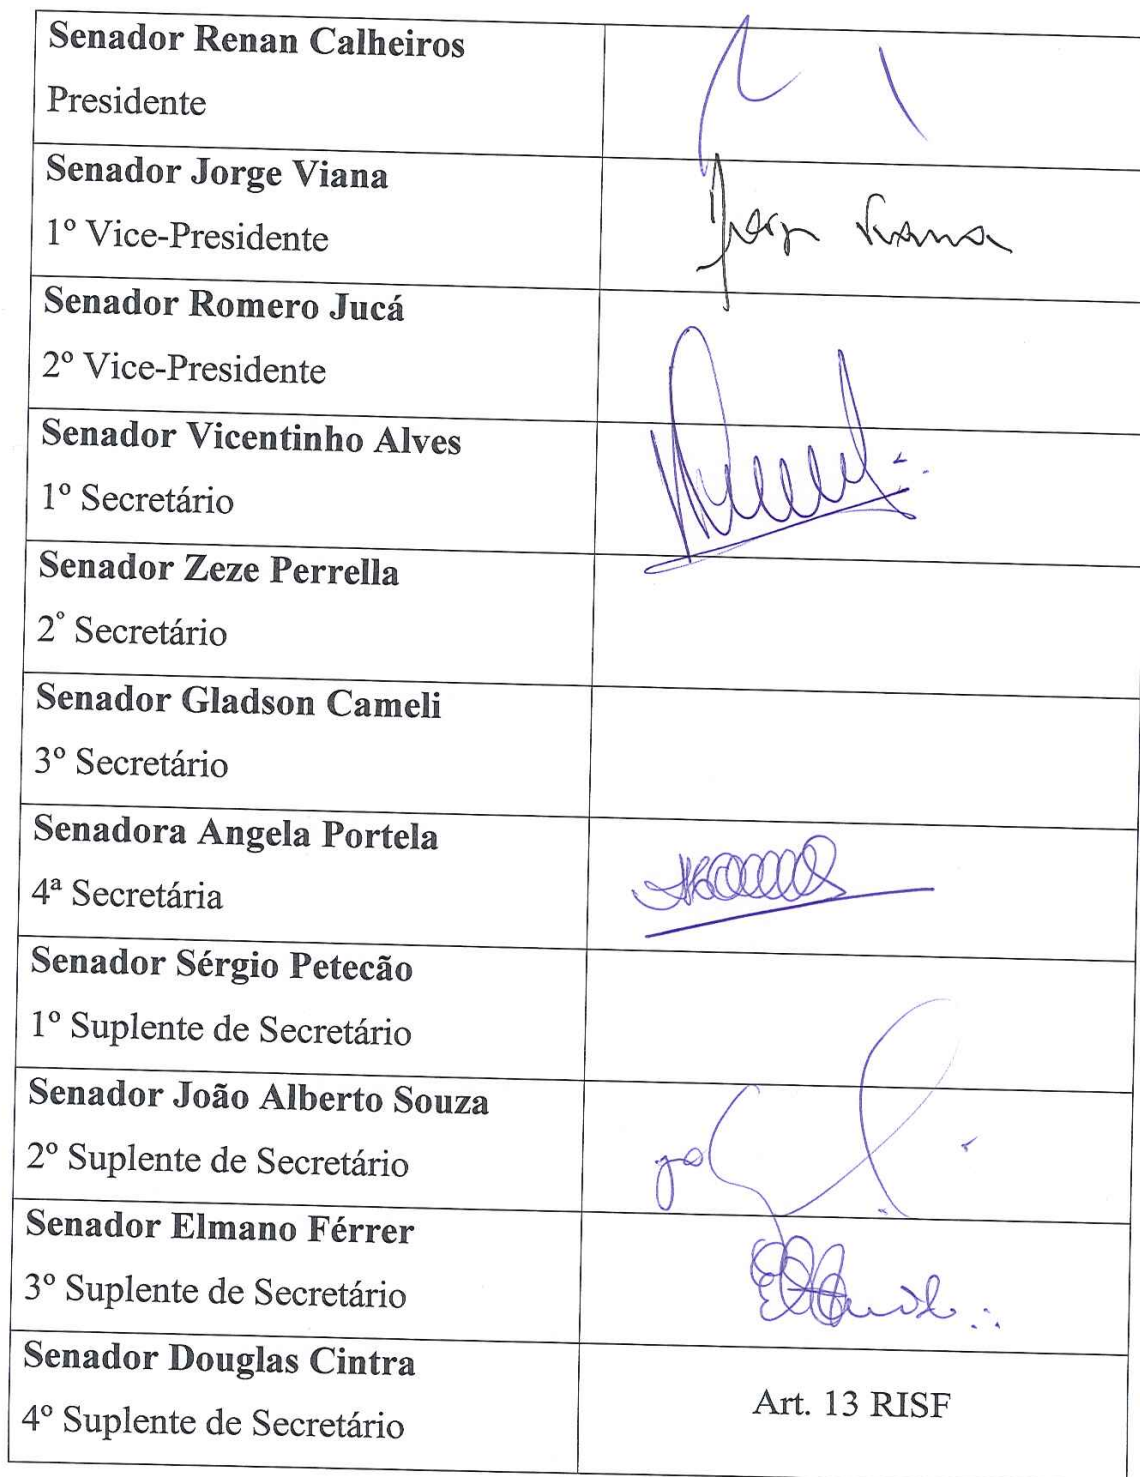 Senador Renan Calheiros
Presidente
Senador Jorge Viana
1º Vice-Presidente
Jorge Viana
Senador Romero Jucá
2º Vice-Presidente
Senador Vicentinho Alves
1º Secretário
Senador Zeze Perrella
2º Secretário
Senador Gladson Cameli
3º Secretário
Senadora Angela Portela
4ª Secretária
Senador Sérgio Petecão
1º Suplente de Secretário
Senador João Alberto Souza
2º Suplente de Secretário
Senador Elmano Férrer
3º Suplente de Secretário
Senador Douglas Cintra
4º Suplente de Secretário
Art. 13 RISF